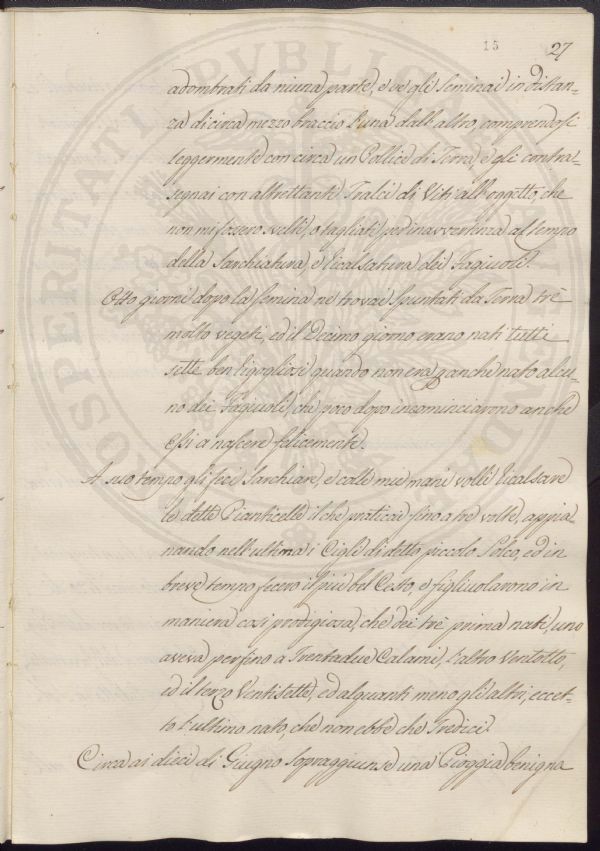 15 27
adombrati da niuna parte, e ve gli seminai in distan-
za di circa mezzo braccio l'una dall'altro, comprendosi
leggermente con circa un Pollice di Terra, e gli contras-
segnai con altrettanti Tralci di Viti all'oggetto, che
non mi fossero svelti, o tagliati per inavvertenza al tempo
della Sarchiatura, e Ricalsatura dei Fagiuoli.
Otto giorni dopo la semina ne trovai spuntati da Terra trè
molto vegeti, ed il Decimo giorno erano nati tutti
sette ben rigogliosi, quando non era ganche nato alcu-
no dei Fagiuoli, che poco dopo incominciarono anche
essi a nascere felicemente.
A suo tempo gli feci Sarchiare, e colle mie mani volli Ricalsare
le dette Pianticelle il che praticai fino a trè volte, appia-
nando nell'ultima i Cigli di detto piccolo Solco, ed in
breve tempo fecero il più bel Cesto, e figliuolarono in
maniera così prodigiosa, che dei trè prima nati, uno
aveva perfino a Trentadue Calami, l'altro Ventotto,
ed il terzo Ventisette, ed alquanti meno gli altri, eccet-
to l'ultimo nato, che non ebbe che Tredici.
Circa ai dieci di Giugno sopraggiunse una Pioggia benigna
PROSPERITATI PUBLICAE